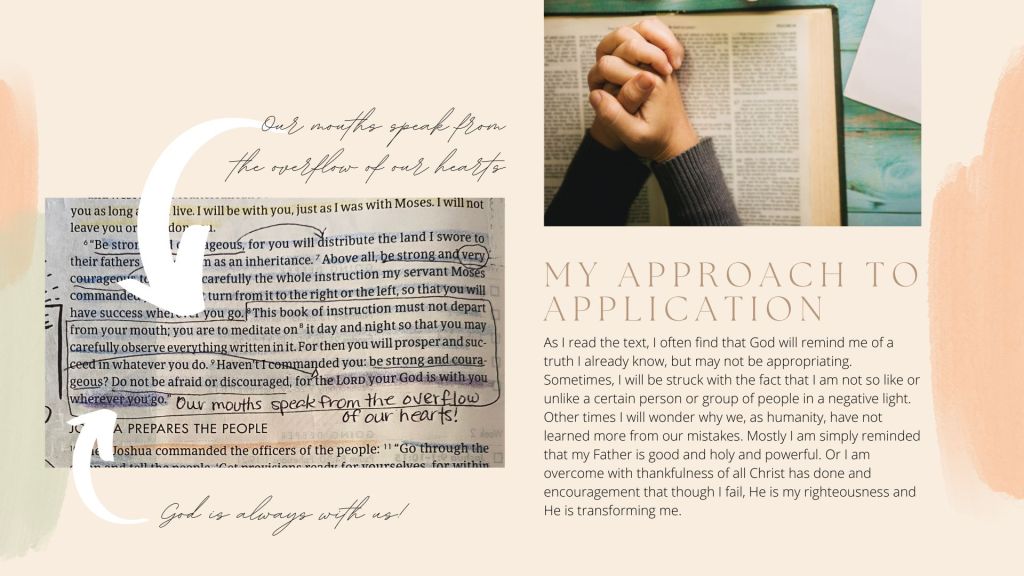 Our mouths speak from
the overflow of our hearts
you as long a live. I will be with you, just as I was with Moses. I will not
leave you or
6 "Be stron geous, for you will distribute the land I swore to
their fathers m as an inheritance. 7 Above all, be strong and very
courageous to carefully the whole instruction my servant Moses
commanded turn from it to the right or the left, so that you will
have success wherever you go. 8 This book of instruction must not depart
from your mouth; you are to meditate on it day and night so that you may
carefully observe everything written in it. For then you will prosper and suc-
ceed in whatever you do. 9 Haven't I commanded you: be strong and coura-
geous? Do not be afraid or discouraged, for the LORD your God is with you
wherever you go."
Our mouths speak from the overflow
of our hearts!
JO A PREPARES THE PEOPLE
Joshua commanded the officers of the people: 11 "Go through the
and tell the people, 'Get provisions ready for yourselves, for within
God is always with us!
MY APPROACH TO
APPLICATION
As I read the text, I often find that God will remind me of a
truth I already know, but may not be appropriating.
Sometimes, I will be struck with the fact that I am not so like or
unlike a certain person or group of people in a negative light.
Other times I will wonder why we, as humanity, have not
learned more from our mistakes. Mostly I am simply reminded
that my Father is good and holy and powerful. Or I am
overcome with thankfulness of all Christ has done and
encouragement that though I fail, He is my righteousness and
He is transforming me.